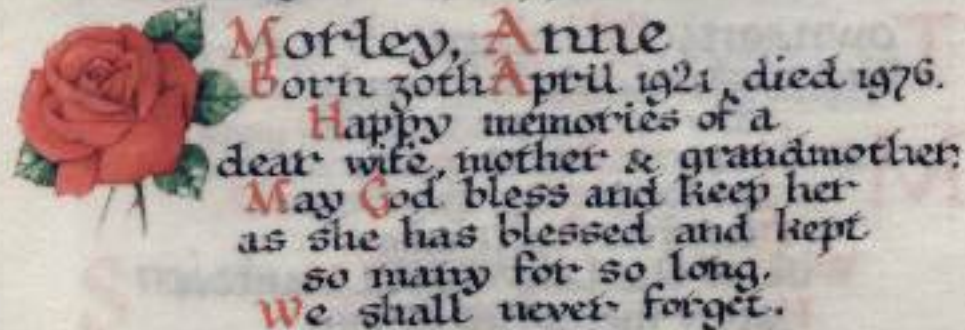 Morley, Anne
Born 30th April 1921, died 1976.
Happy memories of a
dear wife, mother & grandmother;
May God bless and keep her
as she has blessed and kept
so many for so long.
We shall never forget.